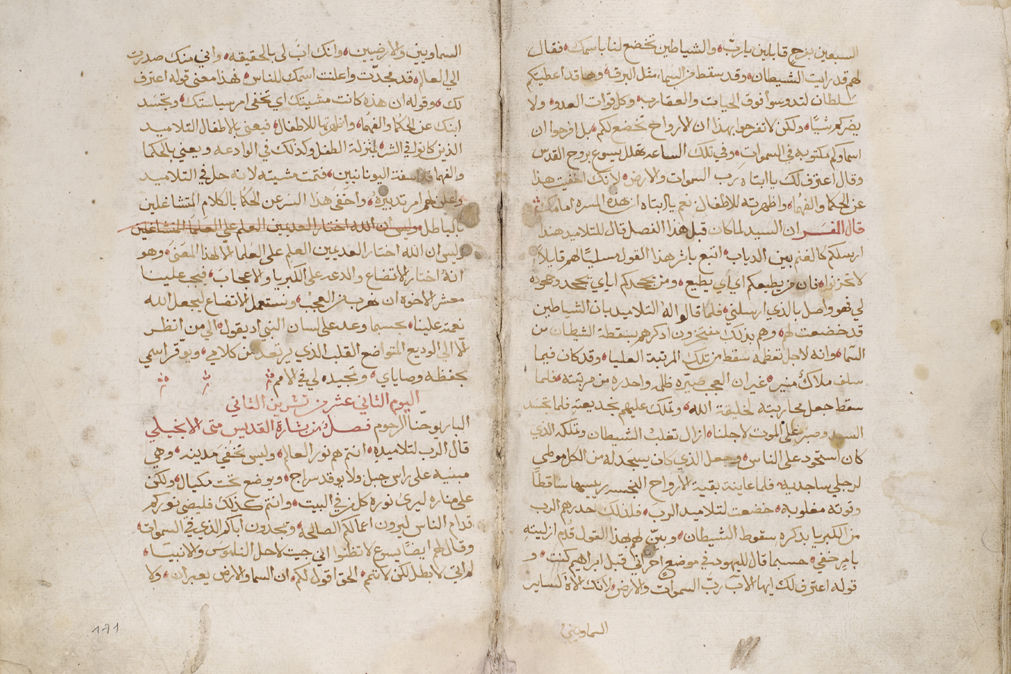 السبعين بفرح قايلين يارب والشياطين تخضع لنا باسمك فقال
لهم قد رايت الشيطان وقد سقط من السما مثل البرق وها قد اعطيكم
سلطان لتدوسوا فوق الحيات والعقارب وكل قوات العدو ولا
يضركم شيا ولكن لا تفرحوا بهذا ان الارواح تخضع لكم بل افرحوا ان
اسماوكم مكتوبه في السموات وفي تلك الساعه تهلل يسوع بروح القدس
وقال اعترف لك ياابتاه رب السموات والارض لانك اخفيت هذا
عن الحكما والفهما واظهرته للاطفال نعم ياابتاه ان هذه المسره امامك
قال المفسر ان السيد لما كان قبل هذا الفصل قال للتلاميد هندا
ارسلكم كالغنم بين الدياب اتبع باثر هذا القول مسليًا لهم قايلاً
لا تحزنوا فان من يطيعكم اياي يطيع ومن يجحدكم اياي يجحد وجحوده
لي فهو واصل بالذي ارسلني فلما قالوا له التلاميد بان الشياطين
قد خضعت لهم وهم بذلك مفتخرون ادكرهم بسقطة الشيطان من
السما وانه لاجل تعظمه سقط من تلك المرتبة العليا وقد كان فيما
سلف ملاك منير غير ان العجب صيره ظلمه واحدره من مرتبته فلما
سقط جعل محاربته لخليقة الله وتملك عليهم بخديعته فلما تجسد
السيد وصبر على الموت لاجلنا ازال تغلب الشيطان وتملكه الذي
كان استحود على الناس وجعل الذي كان يسجد له من الكل موطي
لرجلي ساجديه فلما عاينة بقية الارواح النجسه رييسها ساقطًا
وقوته مغلوبه خضعت لتلاميد الرب فلذلك حدرهم الرب
من الكبريا بذكره سقوط الشيطان وبين لهم بهذا القول قدم ازليته
بامر خفي حسبما قال لليهود في موضع اخر اني قبل ابراهيم كنت و
قوله اعترف لك ايها الاب رب السموات والارض لانك الاه لساير
السماويين
السماويين والارضيين وانك اب لي بالحقيقه واني منك صدرت
الي العالم قد مجدت واعلنت اسمك للناس فهذا معني قوله اعترف
لك وقوله ان هذه كانت مشيتك اي تخفي امر سياستك وتجسد
ابنك عن الحكما والفهما واظهرتها للاطفال فيعني بالاطفال التلاميد
الذين كانوا في الشر بمنزلة الطفل وكذلك في الوادعه ويعني بالحكما
والفهما فلاسفة اليونانيين فتمت مشيته لانه حل في التلاميد
واعلن لهم امر تدبيره واخفي هذا السر عن الحكما بالكلام المتشاغلين
بالباطل وليس ان الله اختار العدمين العلم على العلما المتشاغلين
وليس ان الله اختار العدميين العلم على العلما الا لهذا المعني وهو
انه اختار الاتضاع والدعه على الكبريا والاعجاب فيجب علينا
معشر الاخوة ان نهرب من العجب ونستعمل الاتضاع ليجعل الله
نعمته علينا حسبما وعد على لسان النبي اد يقول الي من انظر
الا الى الوديع المتواضع القلب الذي يرتعد من كلامي ويوقر اسمي
بحفظه وصاياي وتمجيده لي في الامم
اليوم الثاني عشر من تشرين الثاني
البار يوحنا الرحوم فصل من بشارة القديس متى الانجيلي
قال الرب لتلاميذه انتم هم نور العالم وليس تخفي مدينه وهي
مبنيه على راس جبل ولا يوقد سراج ويوضع تحت مكيال ولكن
على مناره ليري نوره كل من في البيت وانتم كذلك فليضي نوركم
قدام الناس ليرون اعمالكم الصالحه ويمجدون اباكم الذي في السموات
وقال لهم ايضًا يسوع لا تظنوا اني جيت لاحل الناموس والانبياء
لم اتي لابطل لكن لاتمم الحق اقول لكم ان السما والارض يعبران ولا
١٨١